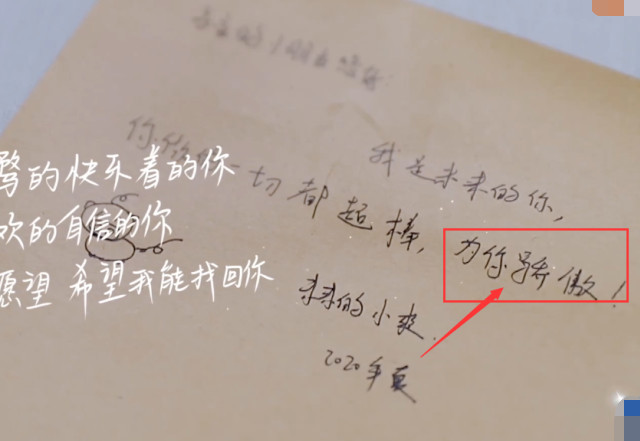 我是未来的你,
你做的一切都超棒,为你骄傲!
未来的小爽.
2020年夏
骜的快乐着的你
欢的自信的你
愿望 希望我能找回你